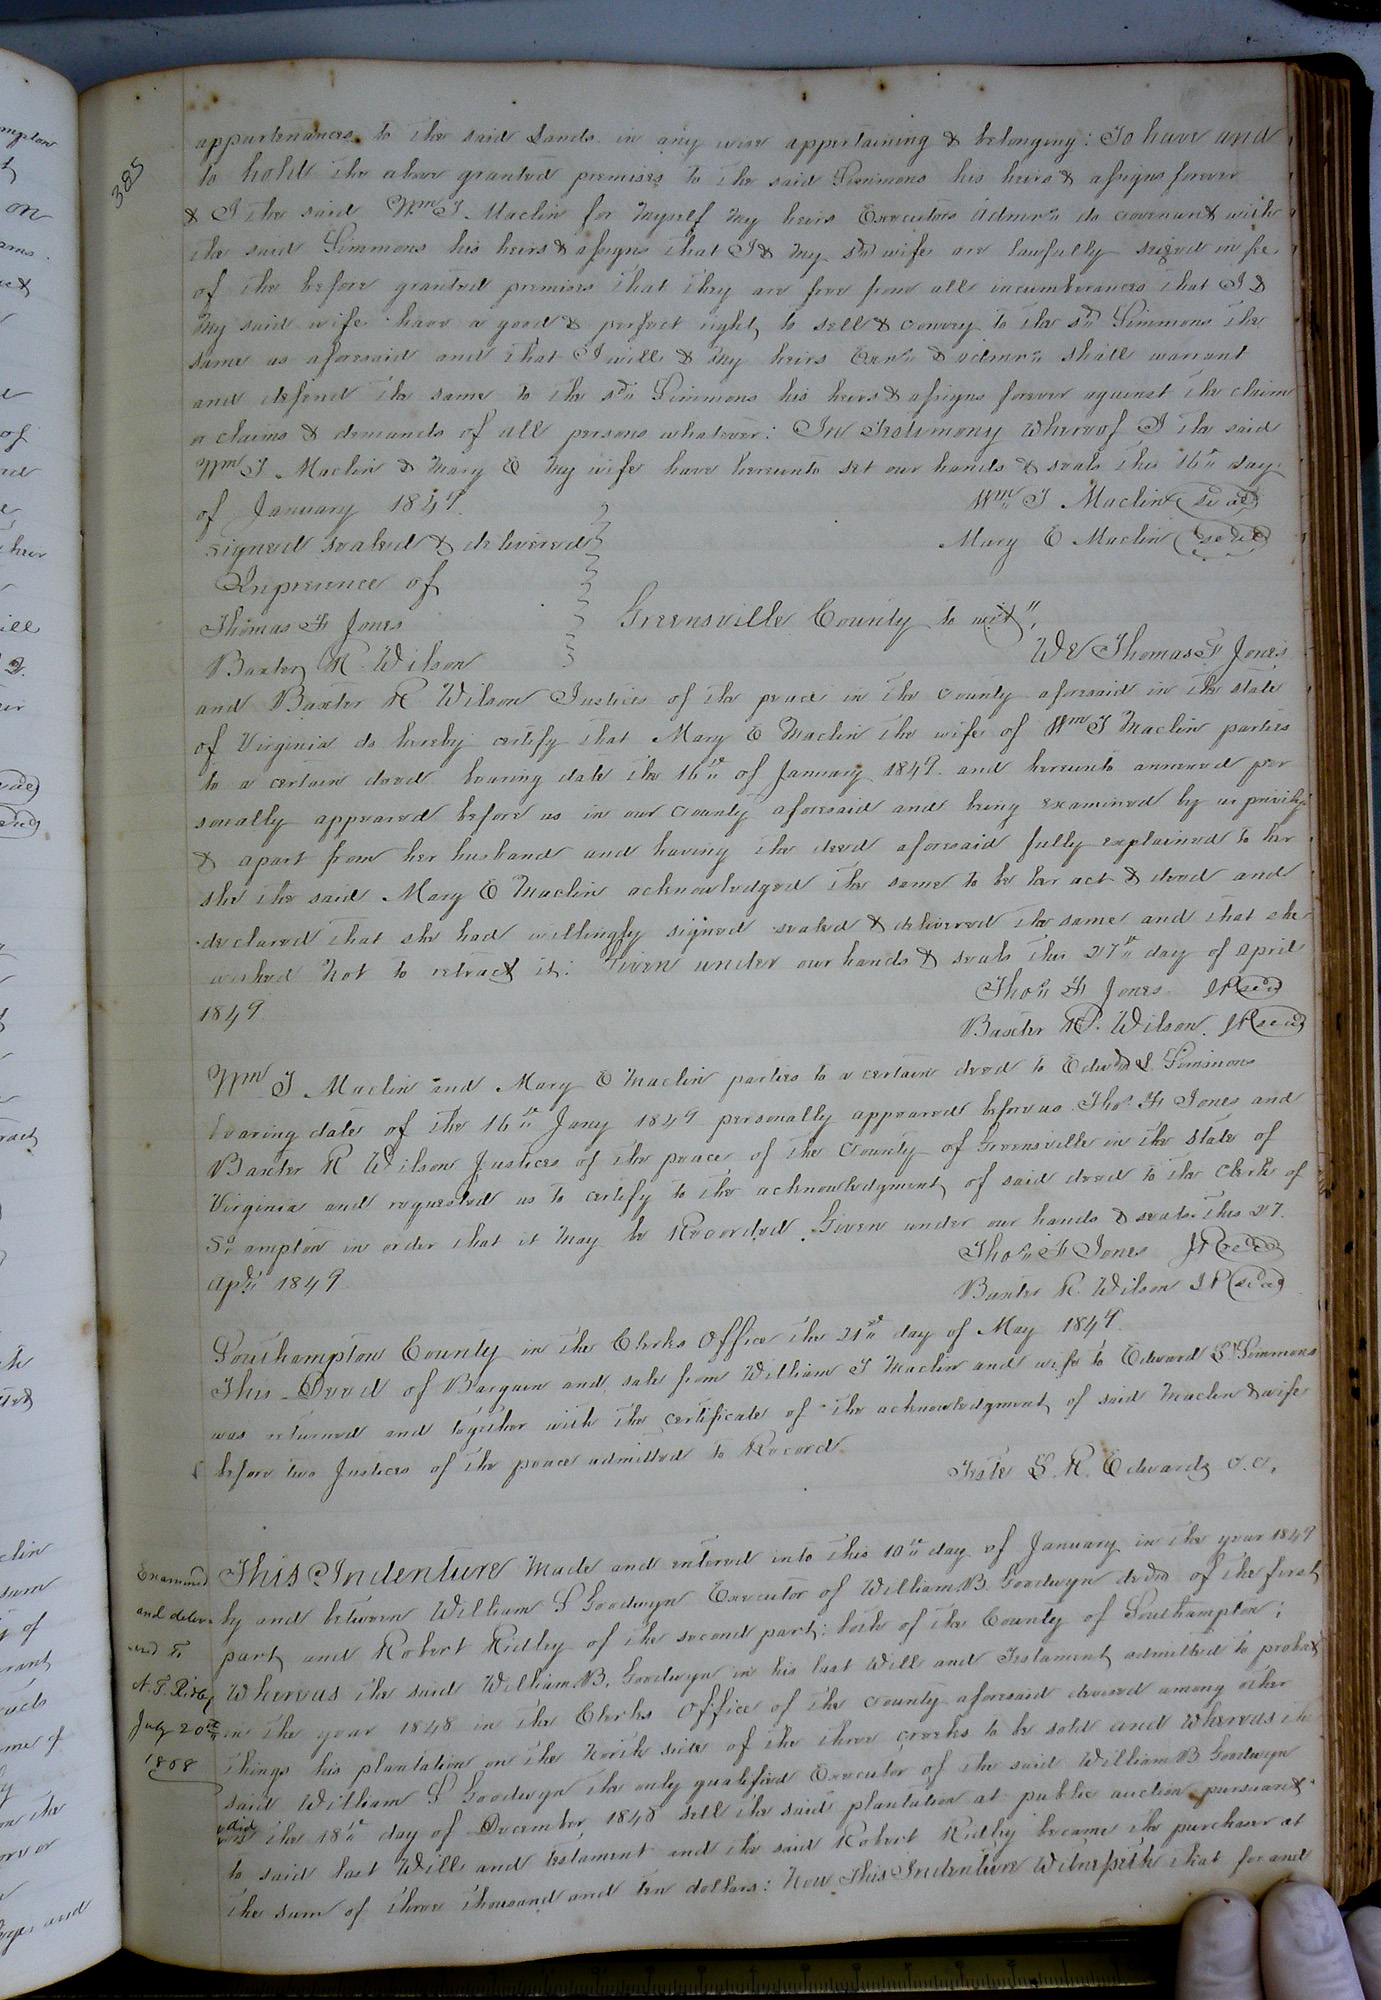 385
appurtenances to the said Lands in any wise appertaining & belonging: To have and
to hold the above granted premises to the said Simmons his heirs & assigns forever
& I the said Wm T Maclin for myself my heirs Executors Admrs do covenant with
the said Simmons his heirs & assigns that I & my sd wife are lawfully seized in fee
of the before granted premises that they are free from all incumberances that I &
my said wife have a good & perfect right to sell & convey to the sd Simmons the
same as aforesaid and that I will & my heirs Exrs & admrs shall warrant
and defend the same to the sd Simmons his heirs & assigns forever against the claim
or claims & demands of all persons whatever: In Testimony Whereof I the said
Wm T Maclin & Mary E my wife have hereunto set our hands & seals this 16th day
of January 1849.
Wm T Maclin (seal)
signed sealed & delivered
Mary E Maclin (seal)
Inpresence of
Thomas F Jones
Greensville County to wit"
Baxter R Wilson
We Thomas F Jones
and Baxter R Wilson Justices of the peace in the county aforesaid in the state
of Virginia do hereby certify that Mary E Maclin the wife of Wm T Maclin parties
to a certain deed bearing date the 16th of January 1849 and hereunto annexed per
sonally appeared before us in our county aforesaid and being examined by us privily
& apart from her husband and having the deed aforesaid fully explained to her
she the said Mary E Maclin acknowledged the same to be her act & deed and
declared that she had willingly signed sealed & delivered the same and that she
wished not to retract it: Given under our hands & seals this 27th day of april
1849
Thos F Jones JP (seal)
Baxter R. Wilson. JP (seal)
Wm T Maclin and Mary E Maclin parties to a certain deed to Edwd S Simmons
bearing date of the 16th Jany 1849 personally appeared before us Thos F Jones and
Baxter R Wilson Justices of the peace of the County of Greensville in the state of
Virginia and requested us to certify to the acknowledgment of said deed to the Clerk of
So ampton in order that it may be Recorded. Given under our hands & seals this 27.
Apl 1849
Thos F Jones JP (seal)
Baxter R. Wilson JP (seal)
Southampton County in the Clerks Office the 21st day of May 1849.
This Deed of Bargain and sale from William T Maclin and wife to Edward S Simmons
was returned and together with the certificate of the acknowledgment of said Maclin & wife
before two Justices of the peace admitted to Record
Teste L. R. Edwards C.C.
Examined
and deliver
ed to
July 20th
1868
This Indenture Made and entered into this 10th day of January in the year 1849
by and between William S Goodwyn Executor of William B. Goodwyn decd of the first
part and Robert Ridley of the second part: both of the County of Southampton;
Whereas the said William B. Goodwyn in his last Will and Testament admitted to probat
in the year 1848 in the Clerks Office of the county aforesaid devised among other
things his plantation on the North side of the three creeks to be sold and Whereas the
said William S Goodwyn the only qualified Executor of the said William B Goodwyn
did the 18th day of December 1848 sell the said plantation at public auction pursuant
to said last Will and testament and the said Robert Ridley became the purchaser at
the sum of three thousand and ten dollars: Now This Indenture Witnesseth that for and